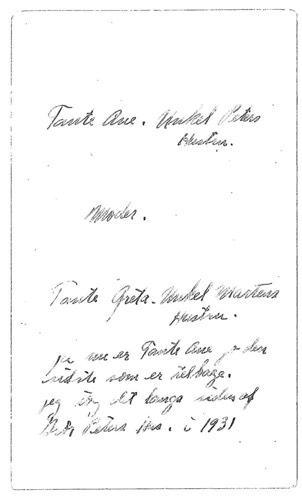 Tante Ane. Unkel Peters
Hustru.
Moder.
Tante Greta. Unkel Martens
Hustru.
ja nu er Tante Ane jo den
sidste som er tilbage.
jeg det lange siden af
Peters 1931